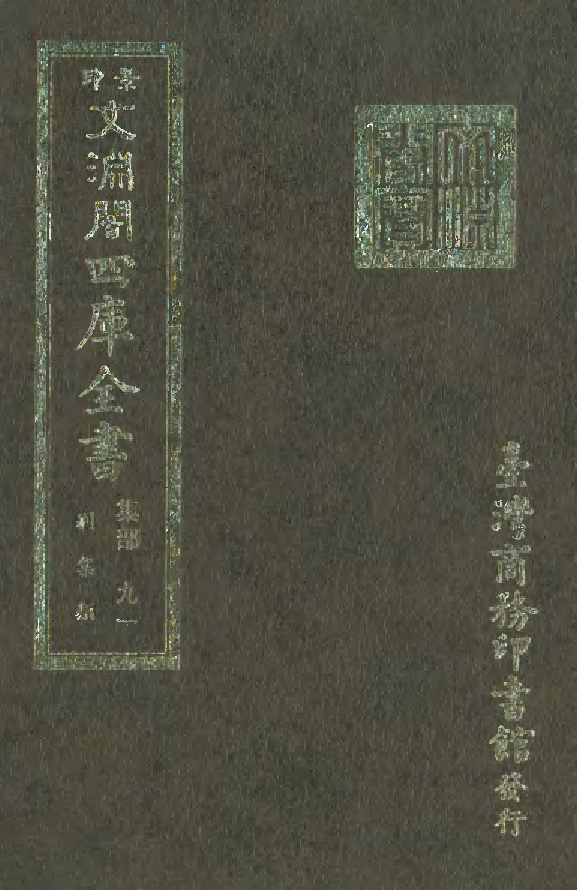 景印
文淵閣四庫全書
集部 九一
別集類
臺灣商務印書館發行